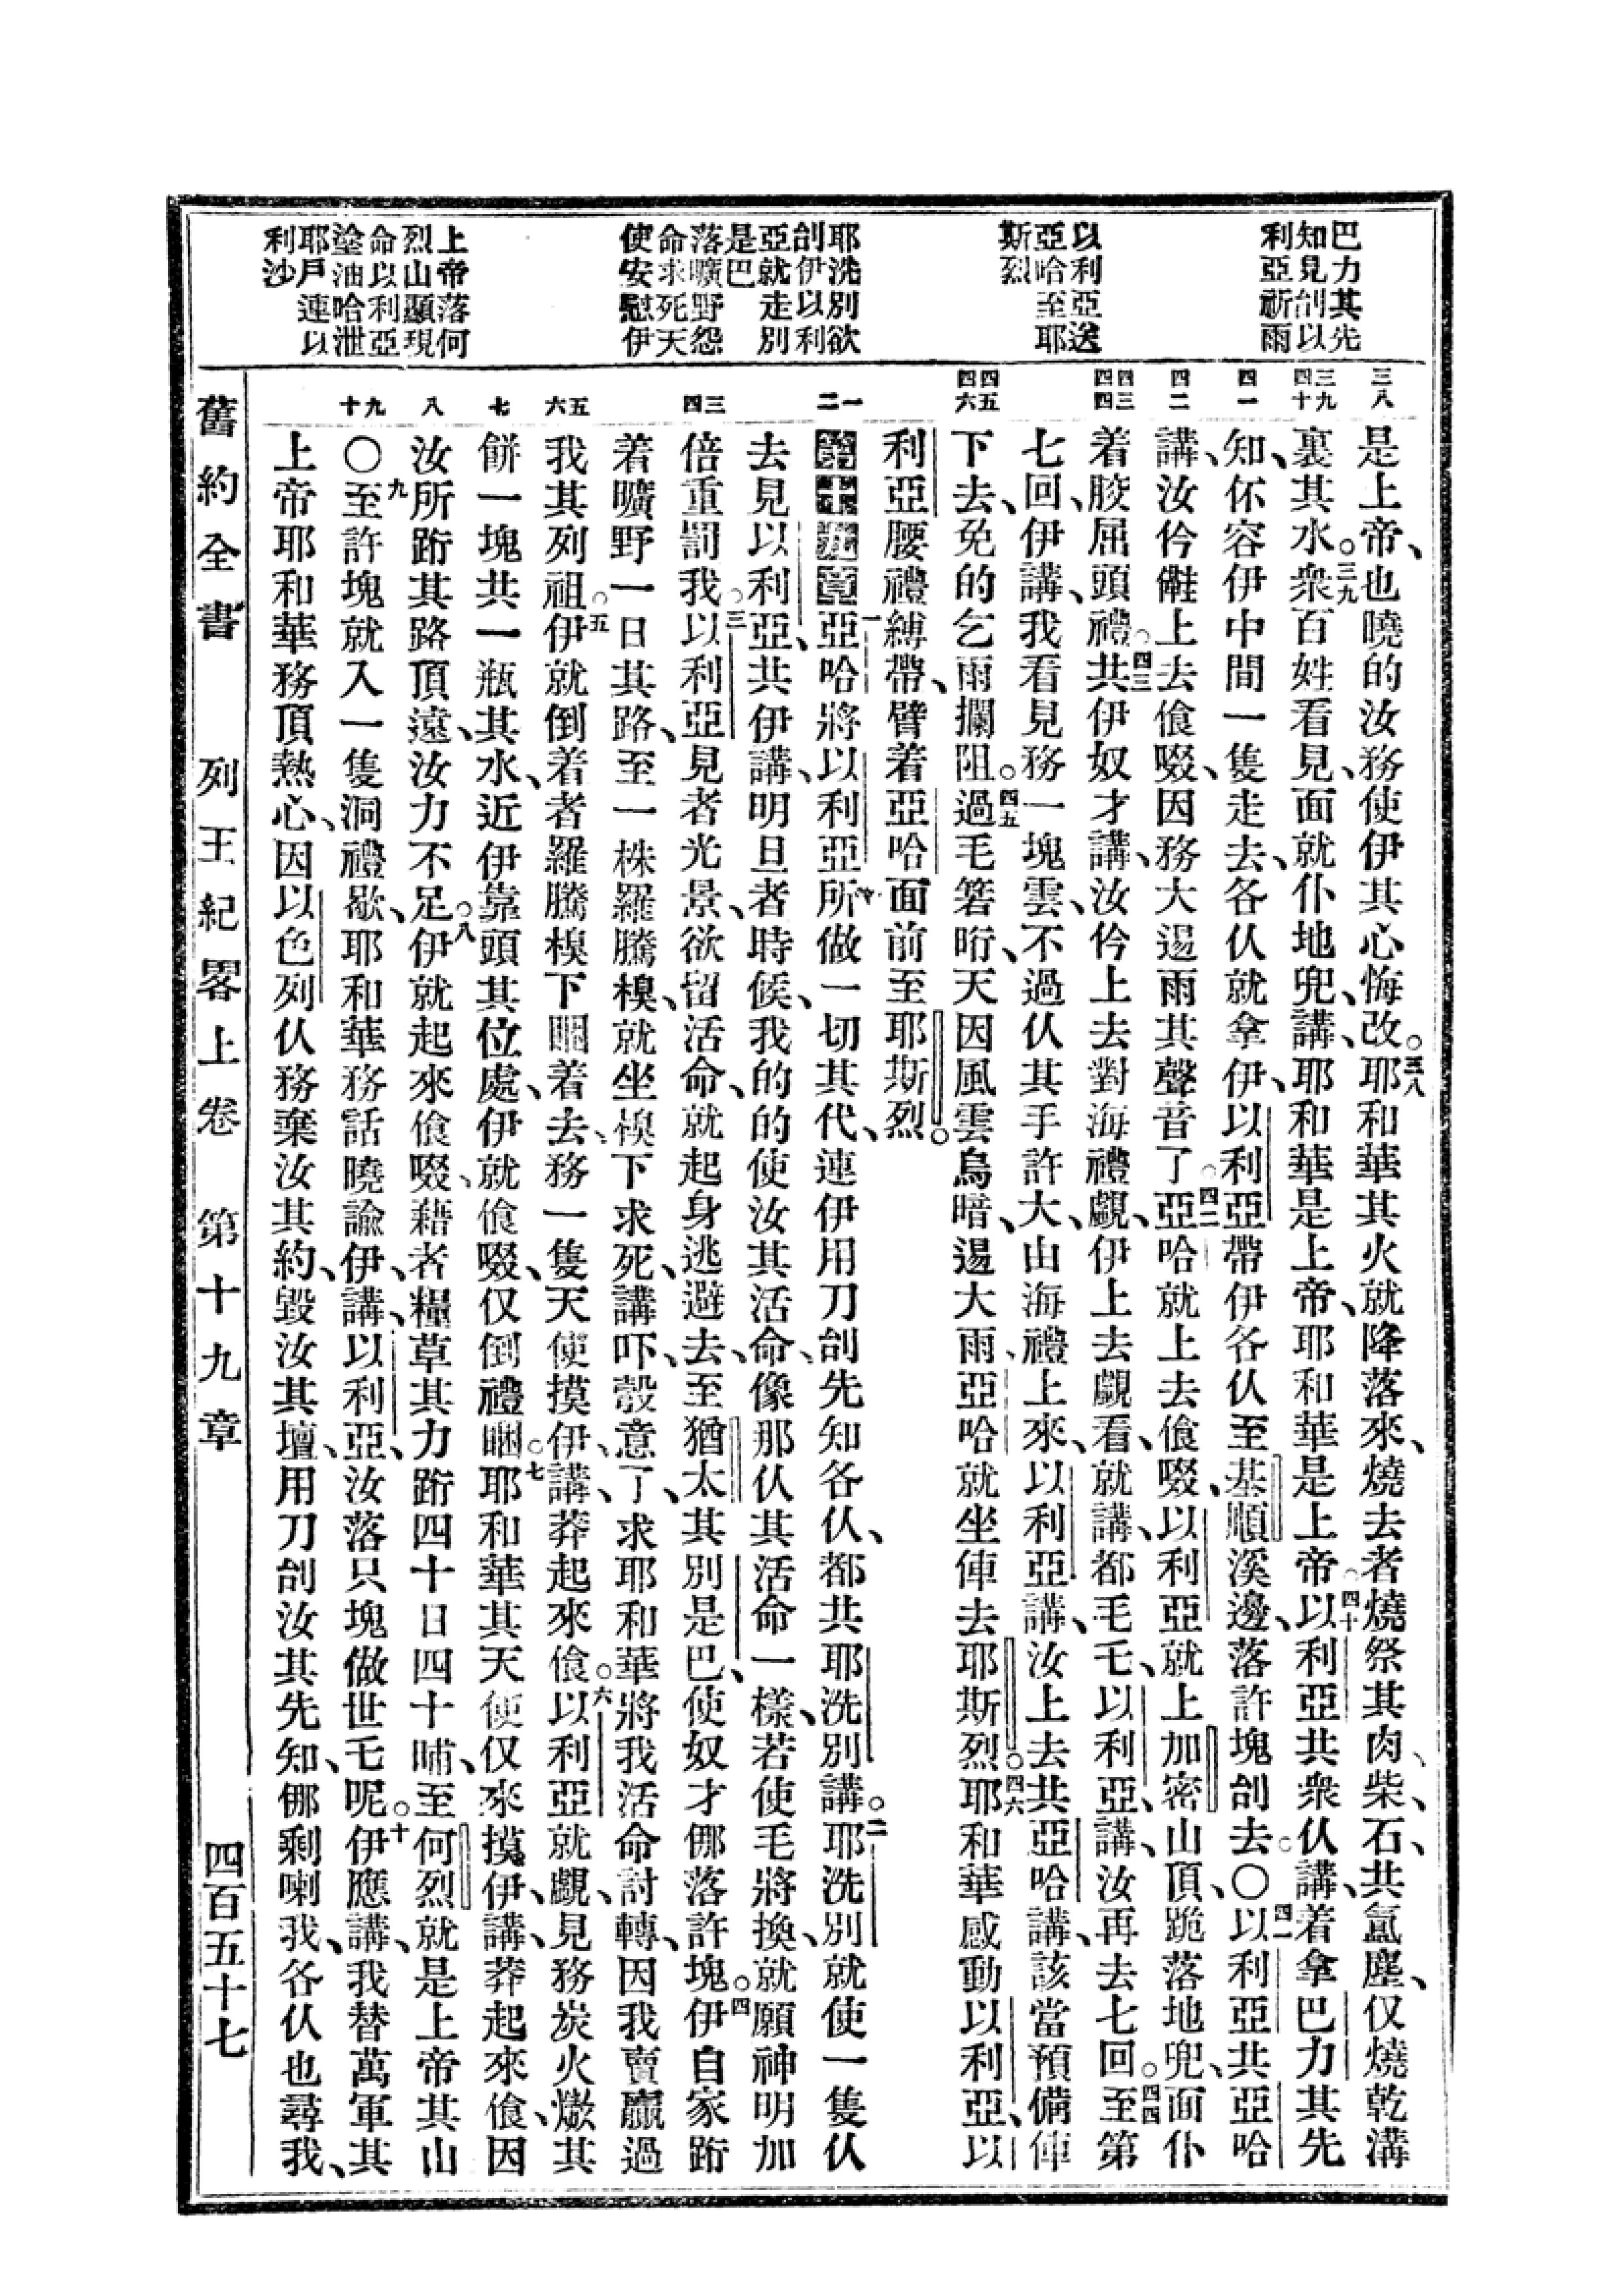 巴力其先
知見刣以
利亞祈雨
以利亞送
亞哈至耶
斯烈
耶洗別欲
刣伊以利
亞就走別
是巴
落曠野怨
命求死天
使安慰伊
上帝落何
烈山顯現
命以利亞
塗油哈泄
耶戶連以
利沙
三八
三九 四十
四一
四二
四三 四四
四五 四六
一 二
三 四
五 六
七
八
九 十
是上帝、也曉的汝務使伊其心悔改。三八耶和華其火就降落來、燒去者燒祭其肉、柴、石、共氳塵、仅燒乾溝
裏其水。三九衆百姓看見、面就仆地兜、講、耶和華是上帝、耶和華是上帝。四十以利亞共衆仈講、着拿巴力其先
知、伓容伊中間一隻走去、各仈就拿伊、以利亞帶伊各仈至基順溪邊、落許塊刣去。○四一以利亞共亞哈
講、汝仱𠁞上去飡啜、因務大逿雨其聲音了。四二亞哈就上去飡啜、以利亞就上加密山頂、跪落地兜、面仆
着骹屈頭禮。四三共伊奴才講、汝仱上去對海禮覷、伊上去覷看、就講、都毛乇、以利亞講、汝再去七回。四四至第
七回、伊講、我看見務一塊雲、不過仈其手許大、由海禮上來、以利亞講、汝上去共亞哈講、該當預備俥
下去、免的乞雨攔阻。四五過毛箬𣍐、天因風雲烏暗、逿大雨、亞哈就坐俥去耶斯烈。四六耶和華感動以利亞、以
利亞腰禮縛帶、躄着亞哈面前至耶斯烈。
第十九章一亞哈將以利亞所做一切其代、連伊用刀刣先知各仈、都共耶洗別講。二耶洗別就使一隻仈
去見以利亞、共伊講、明旦者時候、我的的使汝其活命、像那仈其活命一樣、若使毛將換、就願神明加
倍重罰我。三以利亞見者光景、欲留活命、就起身逃避去、至猶太其別是巴、使奴才㑚落許塊。四伊自家跲
着曠野一日其路、至一株羅騰樉、就坐樉下求死、講、吓、彀意了、求耶和華將我活命討轉、因我賣贏過
我其列祖。五伊就倒着者羅騰樉下𥅘着去、務一隻天使摸伊、講、莽起來飡。六以利亞就覷見務炭火㷮其
餅一塊、共一瓶其水、近伊靠頭其位處、伊就飡啜、仅倒禮𥅘。七耶和華其天使仅來摸伊、講、莽起來飡、因
汝所跲其路頂遠、汝力不足。八伊就起來飡啜、藉者糧草其力跲四十日四十晡、至何烈就是上帝其山
○九至許塊就入一隻洞禮歇、耶和華務話曉諭伊、講、以利亞、汝落只塊做世乇呢。十伊應講、我替萬軍其
上帝耶和華務頂熱心、因以色列仈務棄汝其約、毀汝其壇、用刀刣汝其先知、㑚剩喇我、各仈也尋我、
舊約全書 列王紀畧上卷 第十九章 四百五十七